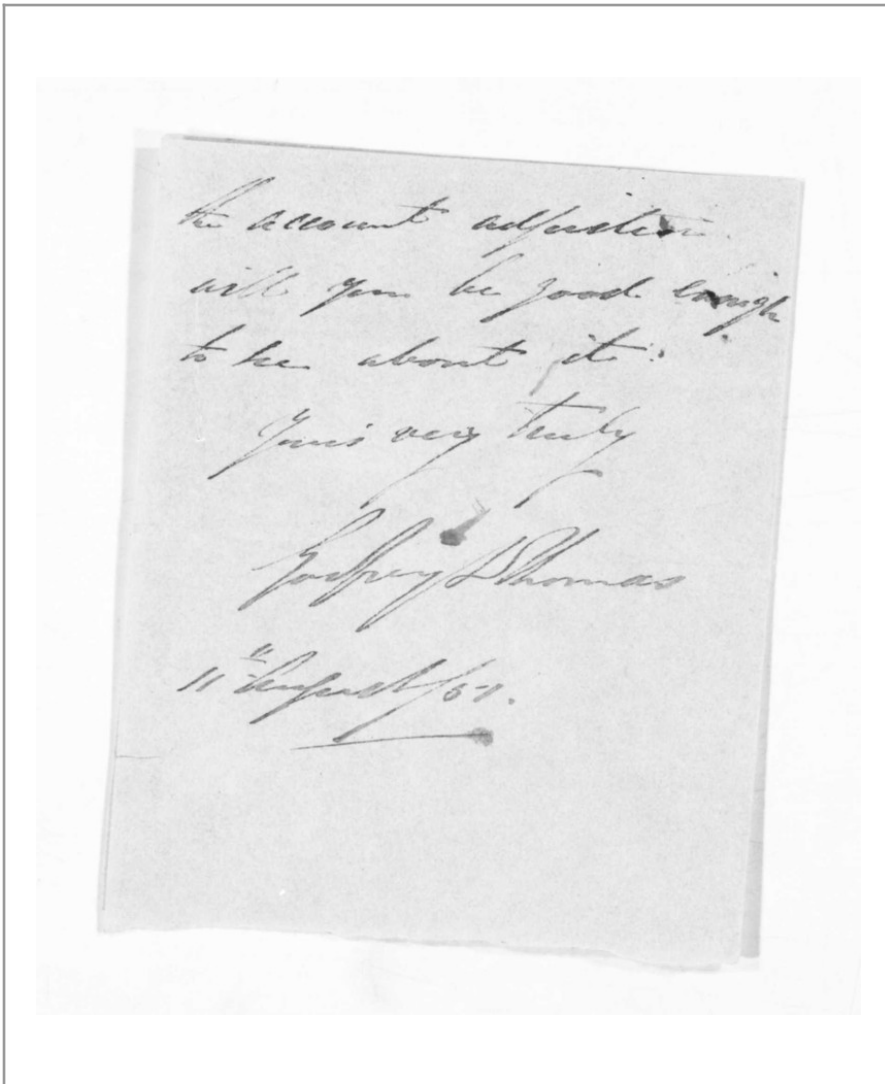 the account adjusted
will you be good enough
to see about it.
Yours very truly
Godfrey J Thomas
11th August/51.